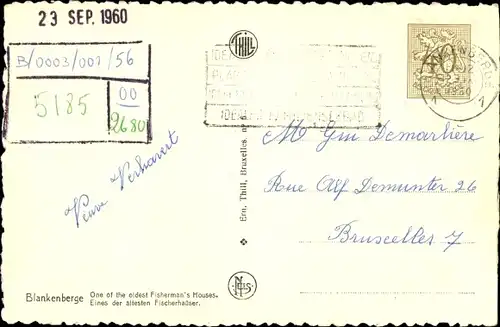 23 SEP. 1960
B/0003/001/56
5185
00
2680
THILL
40
Veuve Verhavert
Ern. Thill, Bruxelles.
M Gm Demarlière
Rue Alf Demunter 26
Bruxelles 7
Blankenberge
One of the oldest Fisherman's Houses.
Eines der ältesten Fischerhaüser.